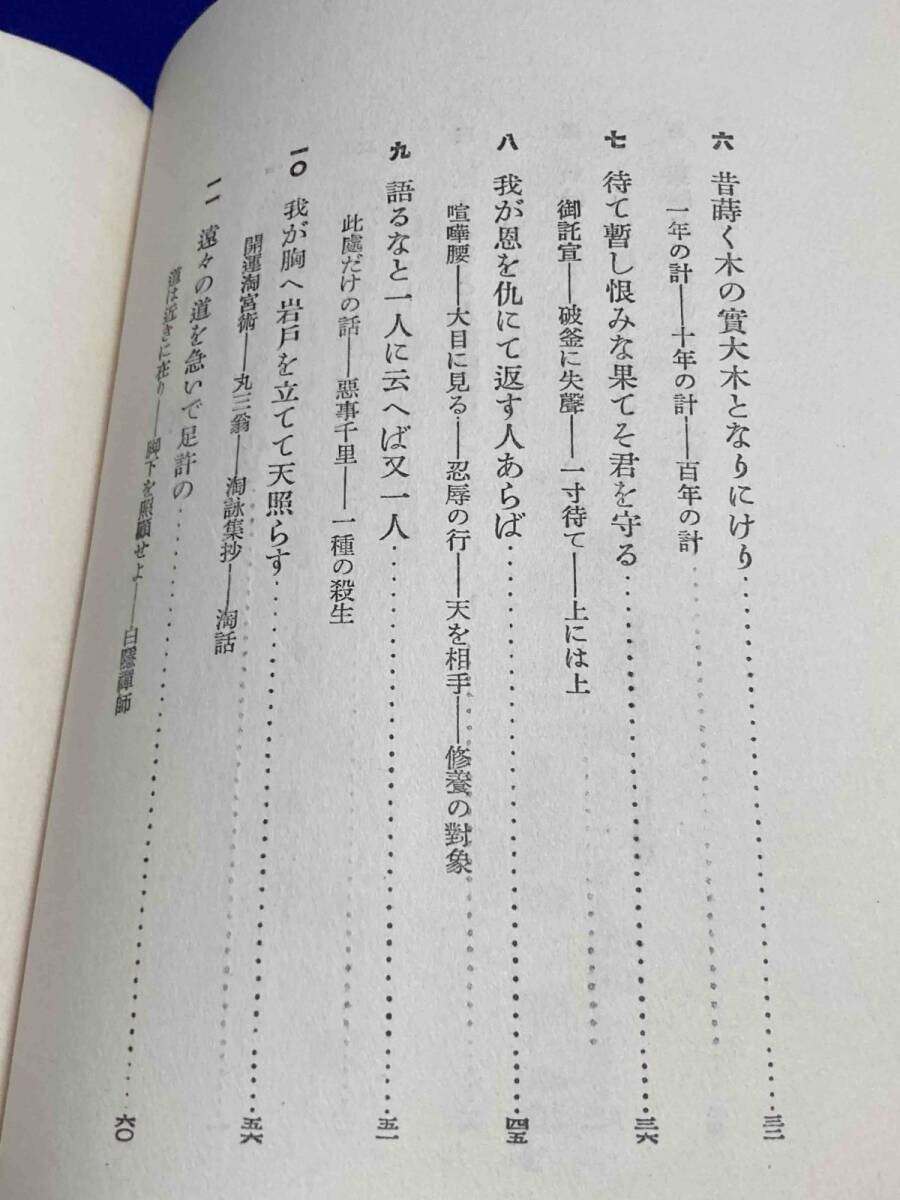 六 昔蒔く木の實大木となりにけり…………三二
一年の計——十年の計——百年の計
七 待て暫し恨みな果てそ君を守る…………三六
御託宣——破釜に失聲——一寸待て——上には上
八 我が恩を仇にて返す人あらば…………四五
喧嘩腰——大目に見る——忍辱の行——天を相手——修養の對象
九 語るなと一人に云へば又一人…………五一
此處だけの話——惡事千里——一種の殺生
一〇 我が胸へ岩戸を立てて天照らす…………五六
開運淘宮術——丸三翁——淘詠集抄——淘話
一一 遠々の道を急いで足許の…………六〇
道は近きに在り——脚下を照顧せよ——白隱禪師